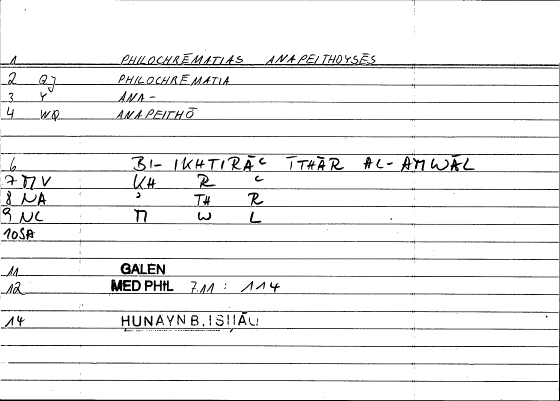 1 PHILOCHRĒMATIAS ANAPEITHOYSĒS
2 QJ PHILOCHRĒMATIA
3 Y ANA-
4 WQ ANAPEITHŌ
6 BI- IKHTIRĀᶜ ĪTHĀR AL-AMWĀL
7 MV KH R ᶜ
8 NA ʾ TH R
9 NC M W L
10 SA
11 GALEN
12 MED PHIL 7.11 : 114
14 HUNAYN B. ISḤĀQ